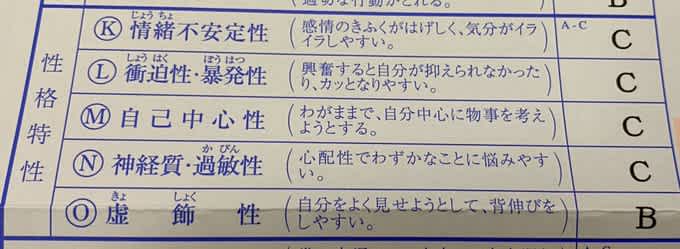 B
性格特性
Ⓚ 情緒不安定性
じょうちょ
(感情のきふくがはげしく、気分がイ
ライラしやすい。)
A-C
C
Ⓛ 衝迫性・暴発性
しょうはく ぼうはつ
(興奮すると自分が抑えられなかった
り、カッとなりやすい。)
C
Ⓜ 自己中心性
(わがままで、自分中心に物事を考え
ようとする。)
C
Ⓝ 神経質・過敏性
かびん
(心配性でわずかなことに悩みやす
い。)
C
Ⓞ 虚飾性
きょ しょく
(自分をよく見せようとして、背伸びを
しやすい。)
B